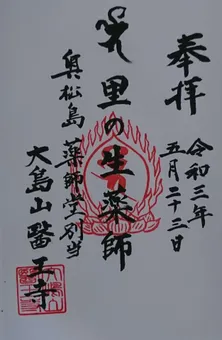 奉拝
令和三年
五月二十三日
里の生薬師
奥松島 薬師堂別当
大島山醫王寺